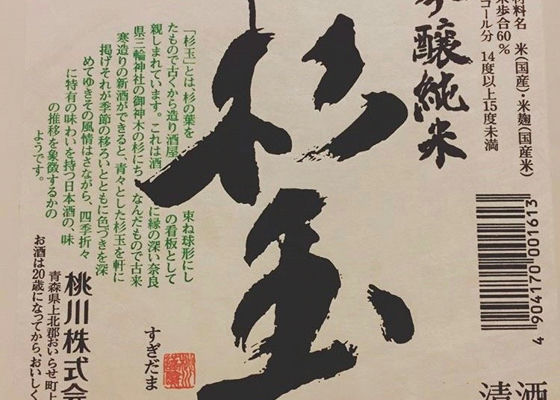 材料名 米(国産)・米麹(国産米)
米歩合60%
コール分 14度以上15度未満
醸純米
杉玉
すぎだま
「杉玉」とは、杉の葉を束ね球形にし
たもので古くから造り酒屋の看板として
親しまれています。これは酒に縁の深い奈良
県三輪神社の御神木の杉にちなんだもので古来
寒造りの新酒ができると、青々とした杉玉を軒に
掲げそれが季節の移ろいとともに色づきを深
めてゆきその風情はさながら、四季折々
に特有の味わいを持つ日本酒の、味
の推移を象徴するかの
ようです。
桃川株式会
青森県上北郡おいらせ町上
お酒は20歳になってから。おいしく
4904170001613
清酒